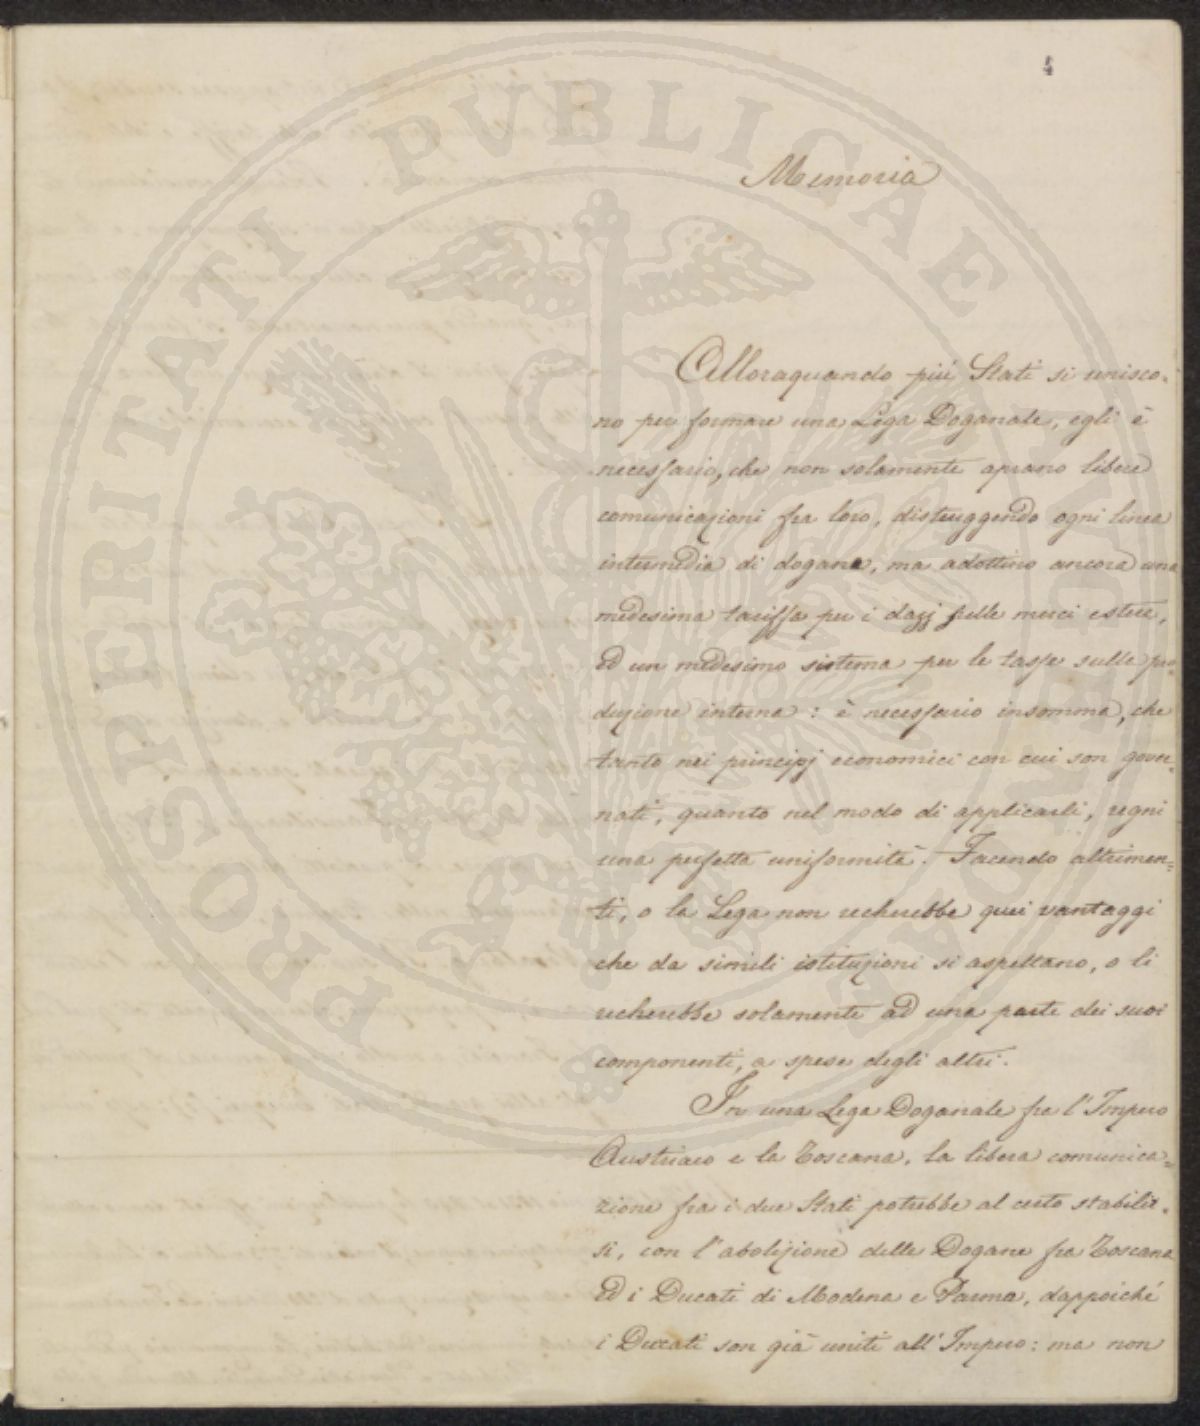 4
Memoria
Alloraquando più Stati si unisco-
no per formare una Lega Doganale, egli è
necessario, che non solamente aprano libere
comunicazioni fra loro, distruggendo ogni linea
intermedia di dogane, ma adottino ancora una
medesima tariffa per i dazj sulle merci estere,
ed un medesimo sistema per le tasse sulla pro-
duzione interna: è necessario insomma, che
tanto nei principj economici con cui son gover-
nati, quanto nel modo di applicarli, regni
una perfetta uniformità. Facendo altrimen=
ti, o la Lega non recherebbe quei vantaggi
che da simili istituzioni si aspettano, o li
recherebbe solamente ad una parte dei suoi
componenti, a spese degli altri.
In una Lega Doganale fra l'Impero
Austriaco e la Toscana, la libera comunica=
zione fra i due Stati potrebbe al certo stabilir-
si, con l'abolizione delle Dogane fra Toscana
ed i Ducati di Modena e Parma, dappoiché
i Ducati son già uniti all'Impero: ma non
PROSPERITATI PUBLICAE AUGENDAE